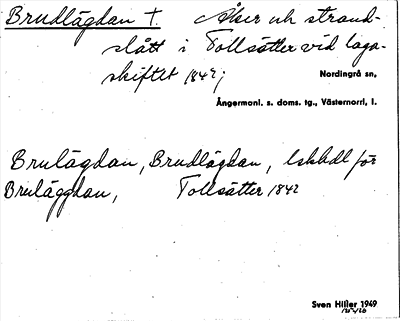 Brudlägdan †. Åker och strand-
slått i Tollsätter vid laga-
skiftet 1842;
Nordingrå sn,
Ångermanl. s. doms. tg., Västernorrl. l.
Brulägdan, Brudlägdan, lskhdl för
Brulägghan, Tollsätter 1842
Sven Hiller 1949